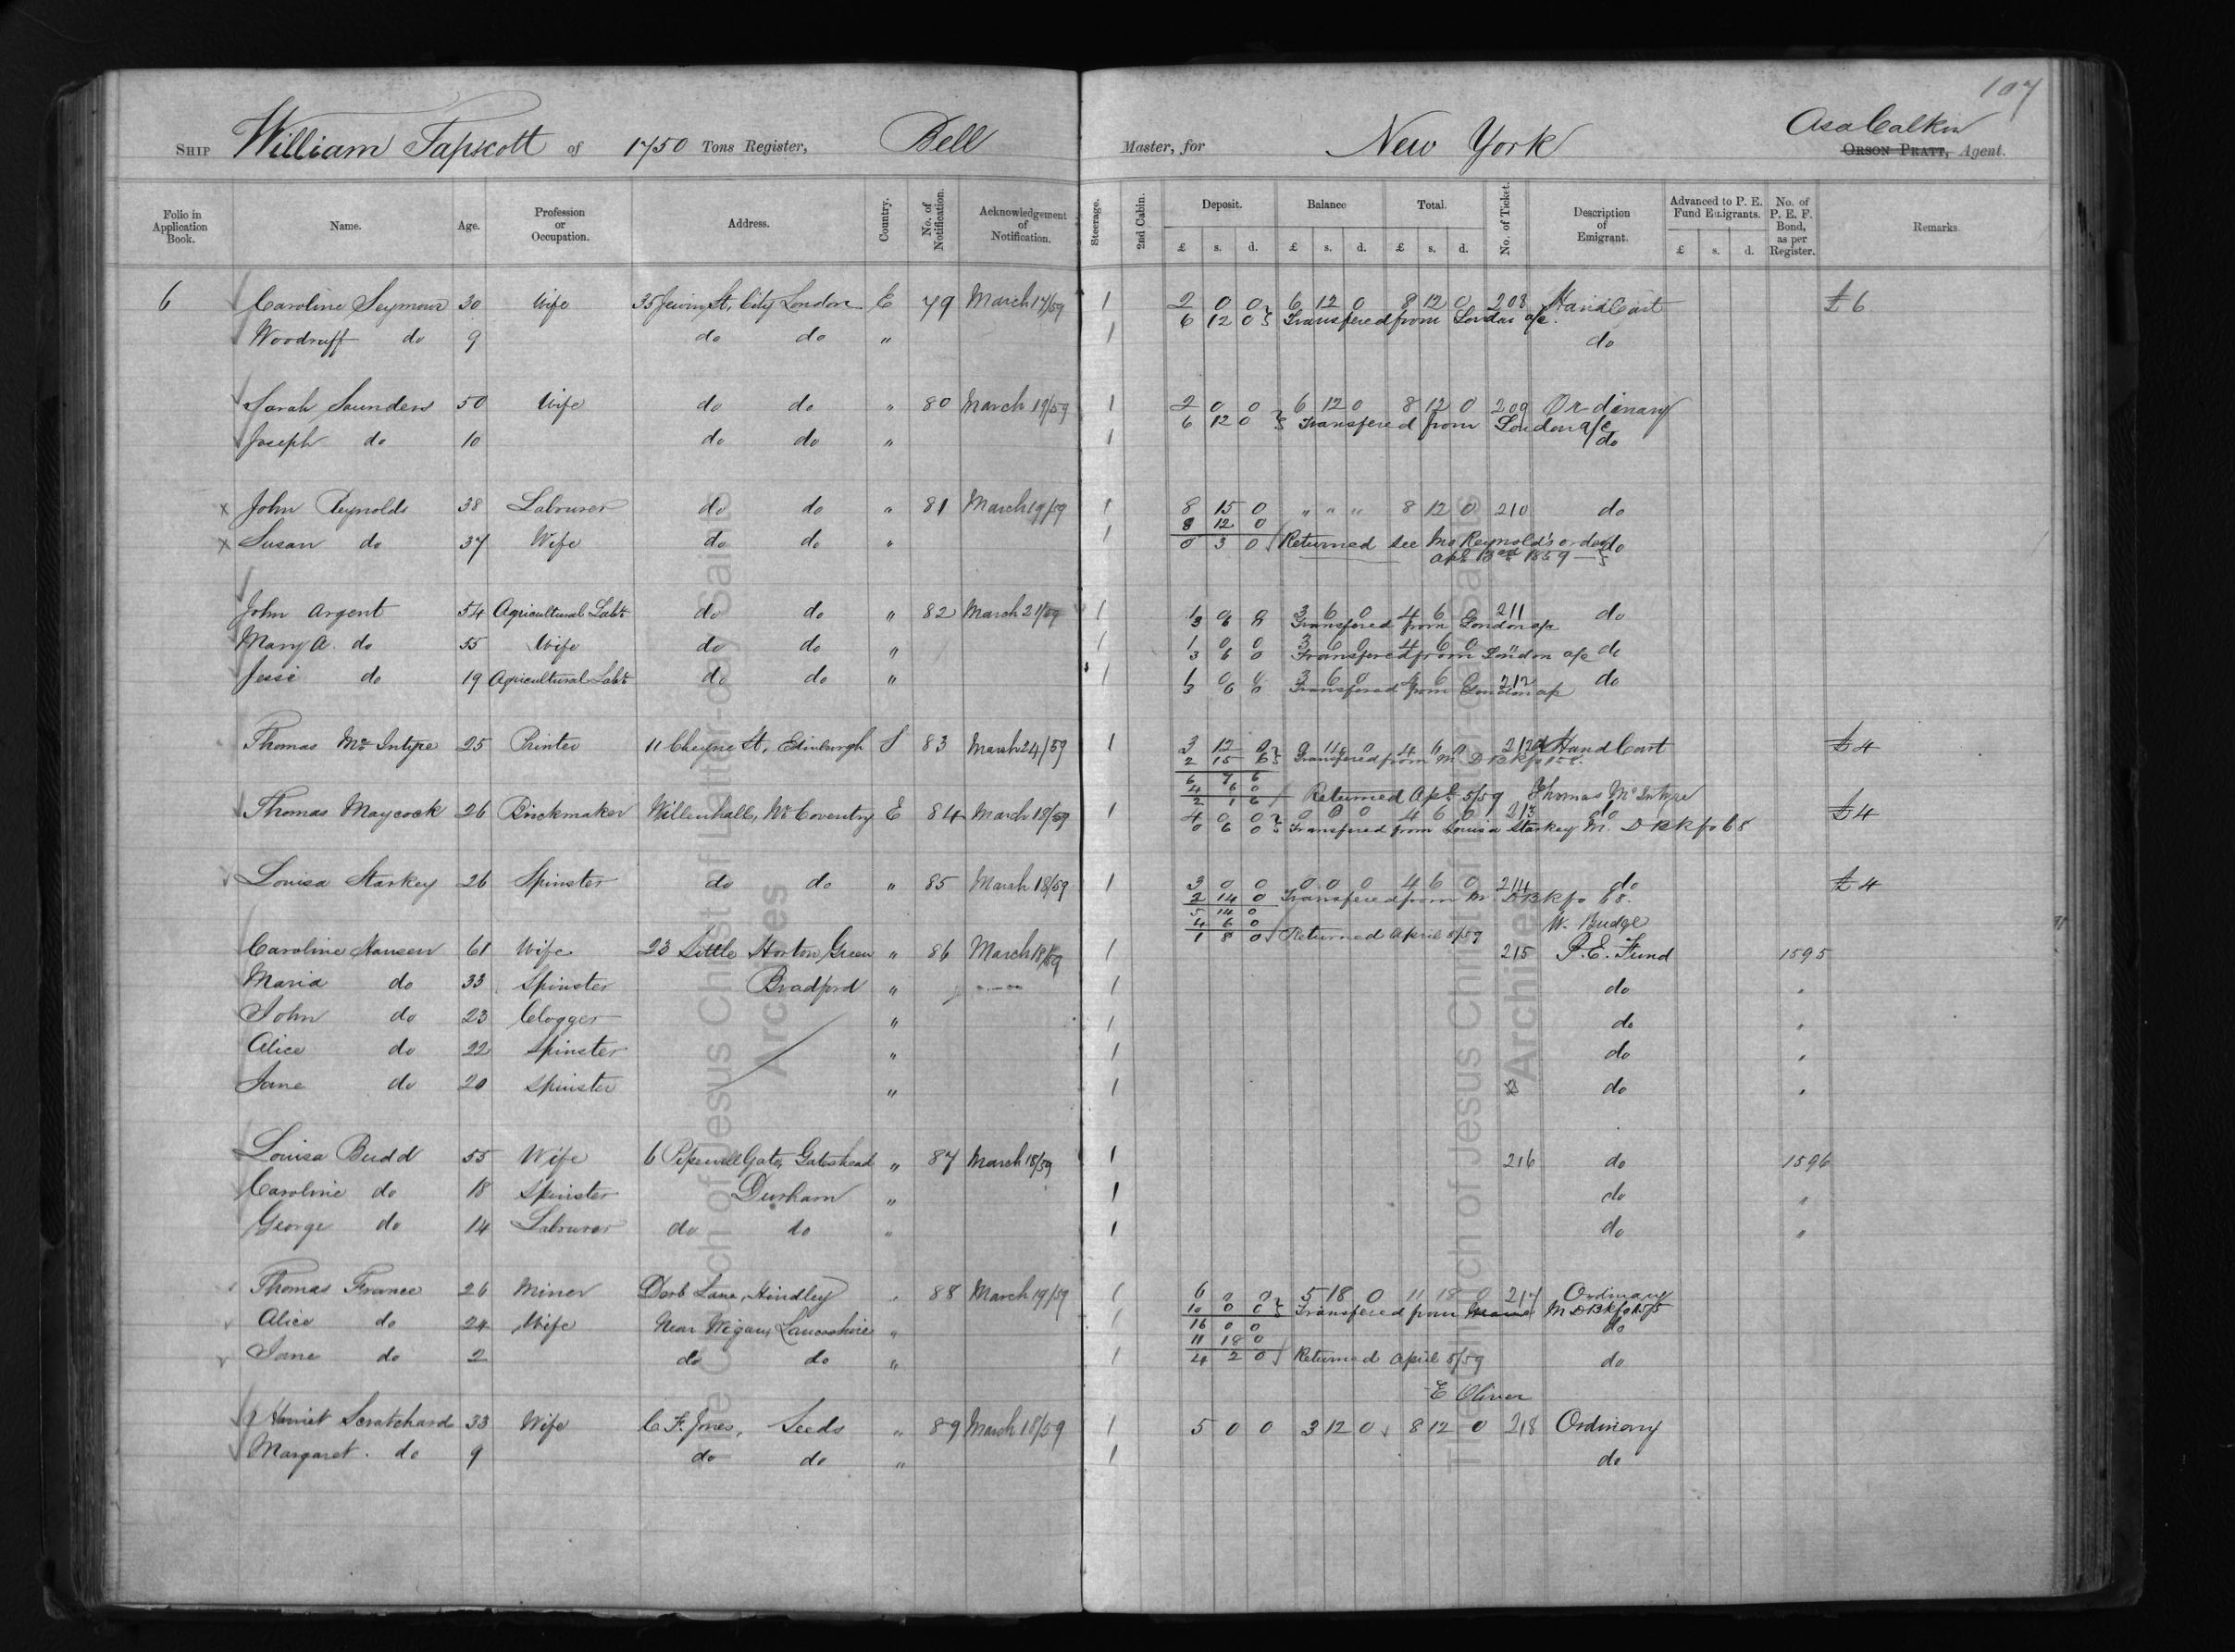 107
SHIP William Tapscott of 1750 Tons Register, Bell Master, for New York Asa Calkin
ORSON PRATT, Agent.
Folio in Application Book. Name. Age. Profession or Occupation. Address. Country. No. of Notification. Acknowledgement of Notification. Steerage. 2nd Cabin. Deposit. Balance Total. No. of Ticket. Description of Emigrant. Advanced to P. E. Fund Emigrants. No. of P. E. F. Bond, as per Register. Remarks
£ s. d. £ s. d. £ s. d. £ s. d.
6 Caroline Seymour 30 Wife 35 Jewin St, City London E 79 March 17/59 1 2 0 0 6 12 0 8 12 0 208 Hand Cart £6
6 12 0 Transfered from London a/c.
Woodruff do 9 do do " 1 do
Sarah Saunders 50 Wife do do " 80 March 19/59 1 2 0 0 6 12 0 8 12 0 209 Ordinary
6 12 0 Transfered from London a/c
Joseph do 10 do do " 1 do
x John Reynolds 38 Labourer do do " 81 March 19/59 1 8 15 0 " " " 8 12 0 210 do
8 12 0
x Susan do 37 Wife do do " 1 0 3 0 Returned See Mr Reynold's order do
Apl 13 1859
John Argent 54 Agricultural Labr do do " 82 March 21/59 1 1 0 0 3 6 0 4 6 0 211 do
3 6 0 Transfered from London a/c
Mary A. do 55 Wife do do " 1 1 0 0 3 6 0 4 6 0 " do
3 6 0 Transfered from London a/c
Jesse do 19 Agricultural Labr do do " 1 1 0 0 3 6 0 4 6 0 212 do
3 6 0 Transfered from London a/c
Thomas McIntyre 25 Printer 11 Cheyne St, Edinburgh S 83 March 24/59 1 3 12 0 4 212 Hand Cart £4
2 15 6 Transfered from M D Bk fo
6 7 6
4 6 0
2 1 6 Returned Apl 5/59 Thomas McIntyre
Thomas Maycock 26 Brickmaker Willenhall, Nr Coventry E 84 March 18/59 1 4 0 0 0 0 0 4 6 0 213 do £4
0 6 0 Transfered from Louisa Starkey M. D Bk fo 68
Louisa Starkey 26 Spinster do do " 85 March 18/59 1 3 0 0 0 0 0 4 6 0 214 do £4
2 14 0 Transfered from M D Bk fo 68.
5 14 0
4 6 0
1 8 0 Returned April 5/59 W. Budge
Caroline Hansen 61 Wife 23 Little Horton Green " 86 March 18/59 1 215 P. E. Fund 1595
Maria do 33 Spinster Bradford " 1 do "
John do 23 Clogger " 1 do "
Alice do 22 Spinster " 1 do "
Jane do 20 Spinster " 1 do "
Louisa Budd 55 Wife 6 Pipewell Gate, Gateshead " 87 March 18/59 1 216 do 1596
Caroline do 18 Spinster Durham " 1 do "
George do 14 Labourer do do " 1 do "
Thomas France 26 Miner Dorb Lane, Hindley " 88 March 19/59 1 6 0 0 5 18 0 11 18 0 217 Ordinary
10 0 0 Transfered from M D Bk fo
Alice do 24 Wife Near Wigan, Lancashire " 1 16 0 0 do
11 18 0
Jane do 2 do do " 1 4 2 0 Returned April 5/59 do
E Oliver
Harriet Scratchard 33 Wife C. F. Jones, Leeds " 89 March 18/59 1 5 0 0 3 12 0 8 12 0 218 Ordinary
Margaret do 9 do do " 1 do
The Church of Jesus Christ of Latter-day Saints
Archives
The Church of Jesus Christ of Latter-day Saints
Archives